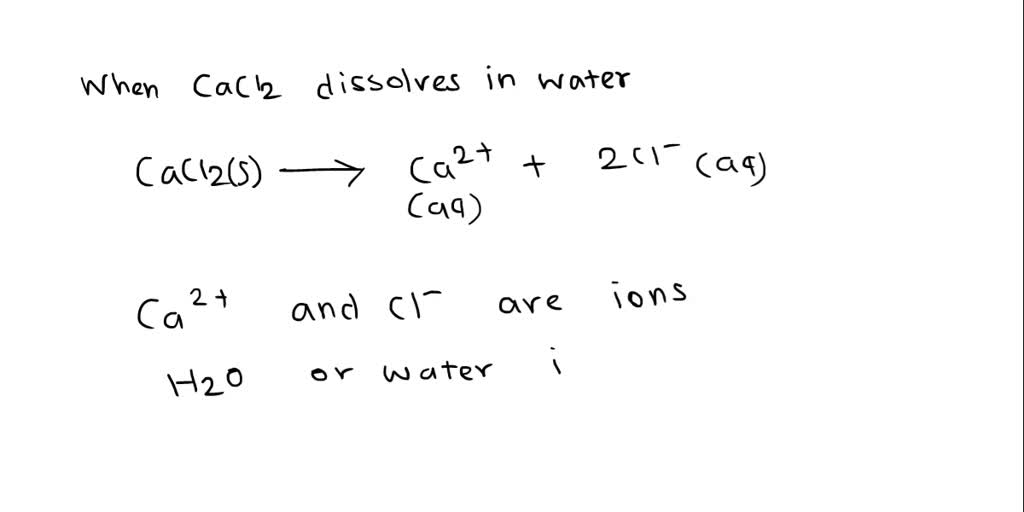 When CaCl2 dissolves in water
CaCl2(s) ⟶ Ca²⁺ + 2Cl⁻ (aq)
(aq)
Ca²⁺ and Cl⁻ are ions
H2O or water i